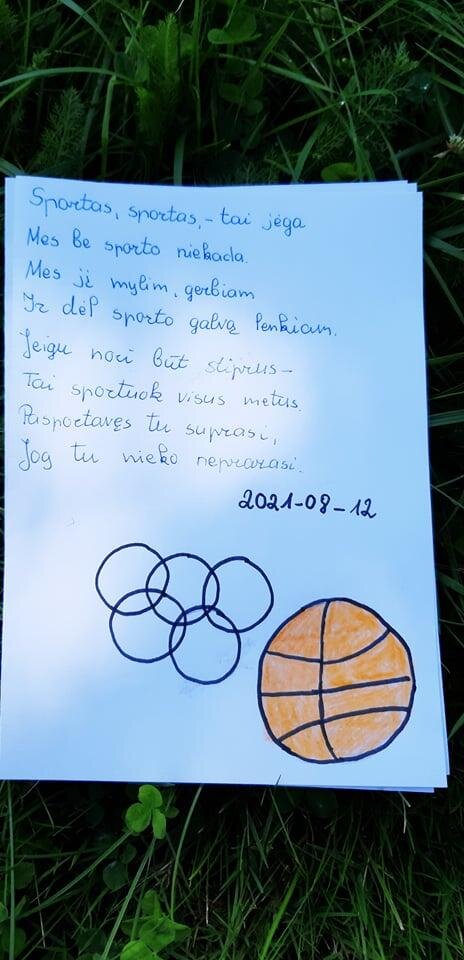 Sportas, sportas, - tai jėga
Mes be sporto niekada.
Mes jį mylim, gerbiam
Ir dėl sporto galvą lenkiam.
Jeigu nori būt stiprus -
Tai sportuok visus metus.
Pasportavęs tu suprasi,
Jog tu nieko neprarasi.
2021-08-12